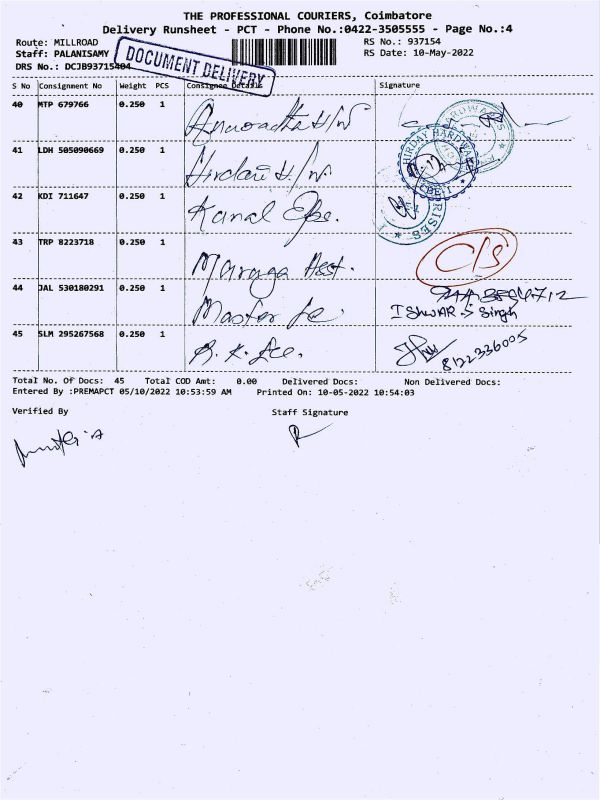 THE PROFESSIONAL COURIERS, Coimbatore
Delivery Runsheet - PCT - Phone No.:0422-3505555 - Page No.:4
Route: MILLROAD RS No.: 937154
Staff: PALANISAMY RS Date: 10-May-2022
DRS No.: DCJB93715404
DOCUMENT DELIVERY
S No Consignment No Weight PCS Consignee Details Signature
40 MTP 679766 0.250 1 Anuradha H/W
41 LDH 505090669 0.250 1 H/W.
HIRDAY HARDWARE
CBE-1
42 KDI 711647 0.250 1 Kamal
43 TRP 8223718 0.250 1 C/S
44 JAL 530180291 0.250 1 Master
Ishwar.S Singh
45 SLM 295267568 0.250 1 8122336005
Total No. Of Docs: 45 Total COD Amt: 0.00 Delivered Docs: Non Delivered Docs:
Entered By :PREMAPCT 05/10/2022 10:53:59 AM Printed On: 10-05-2022 10:54:03
Verified By Staff Signature